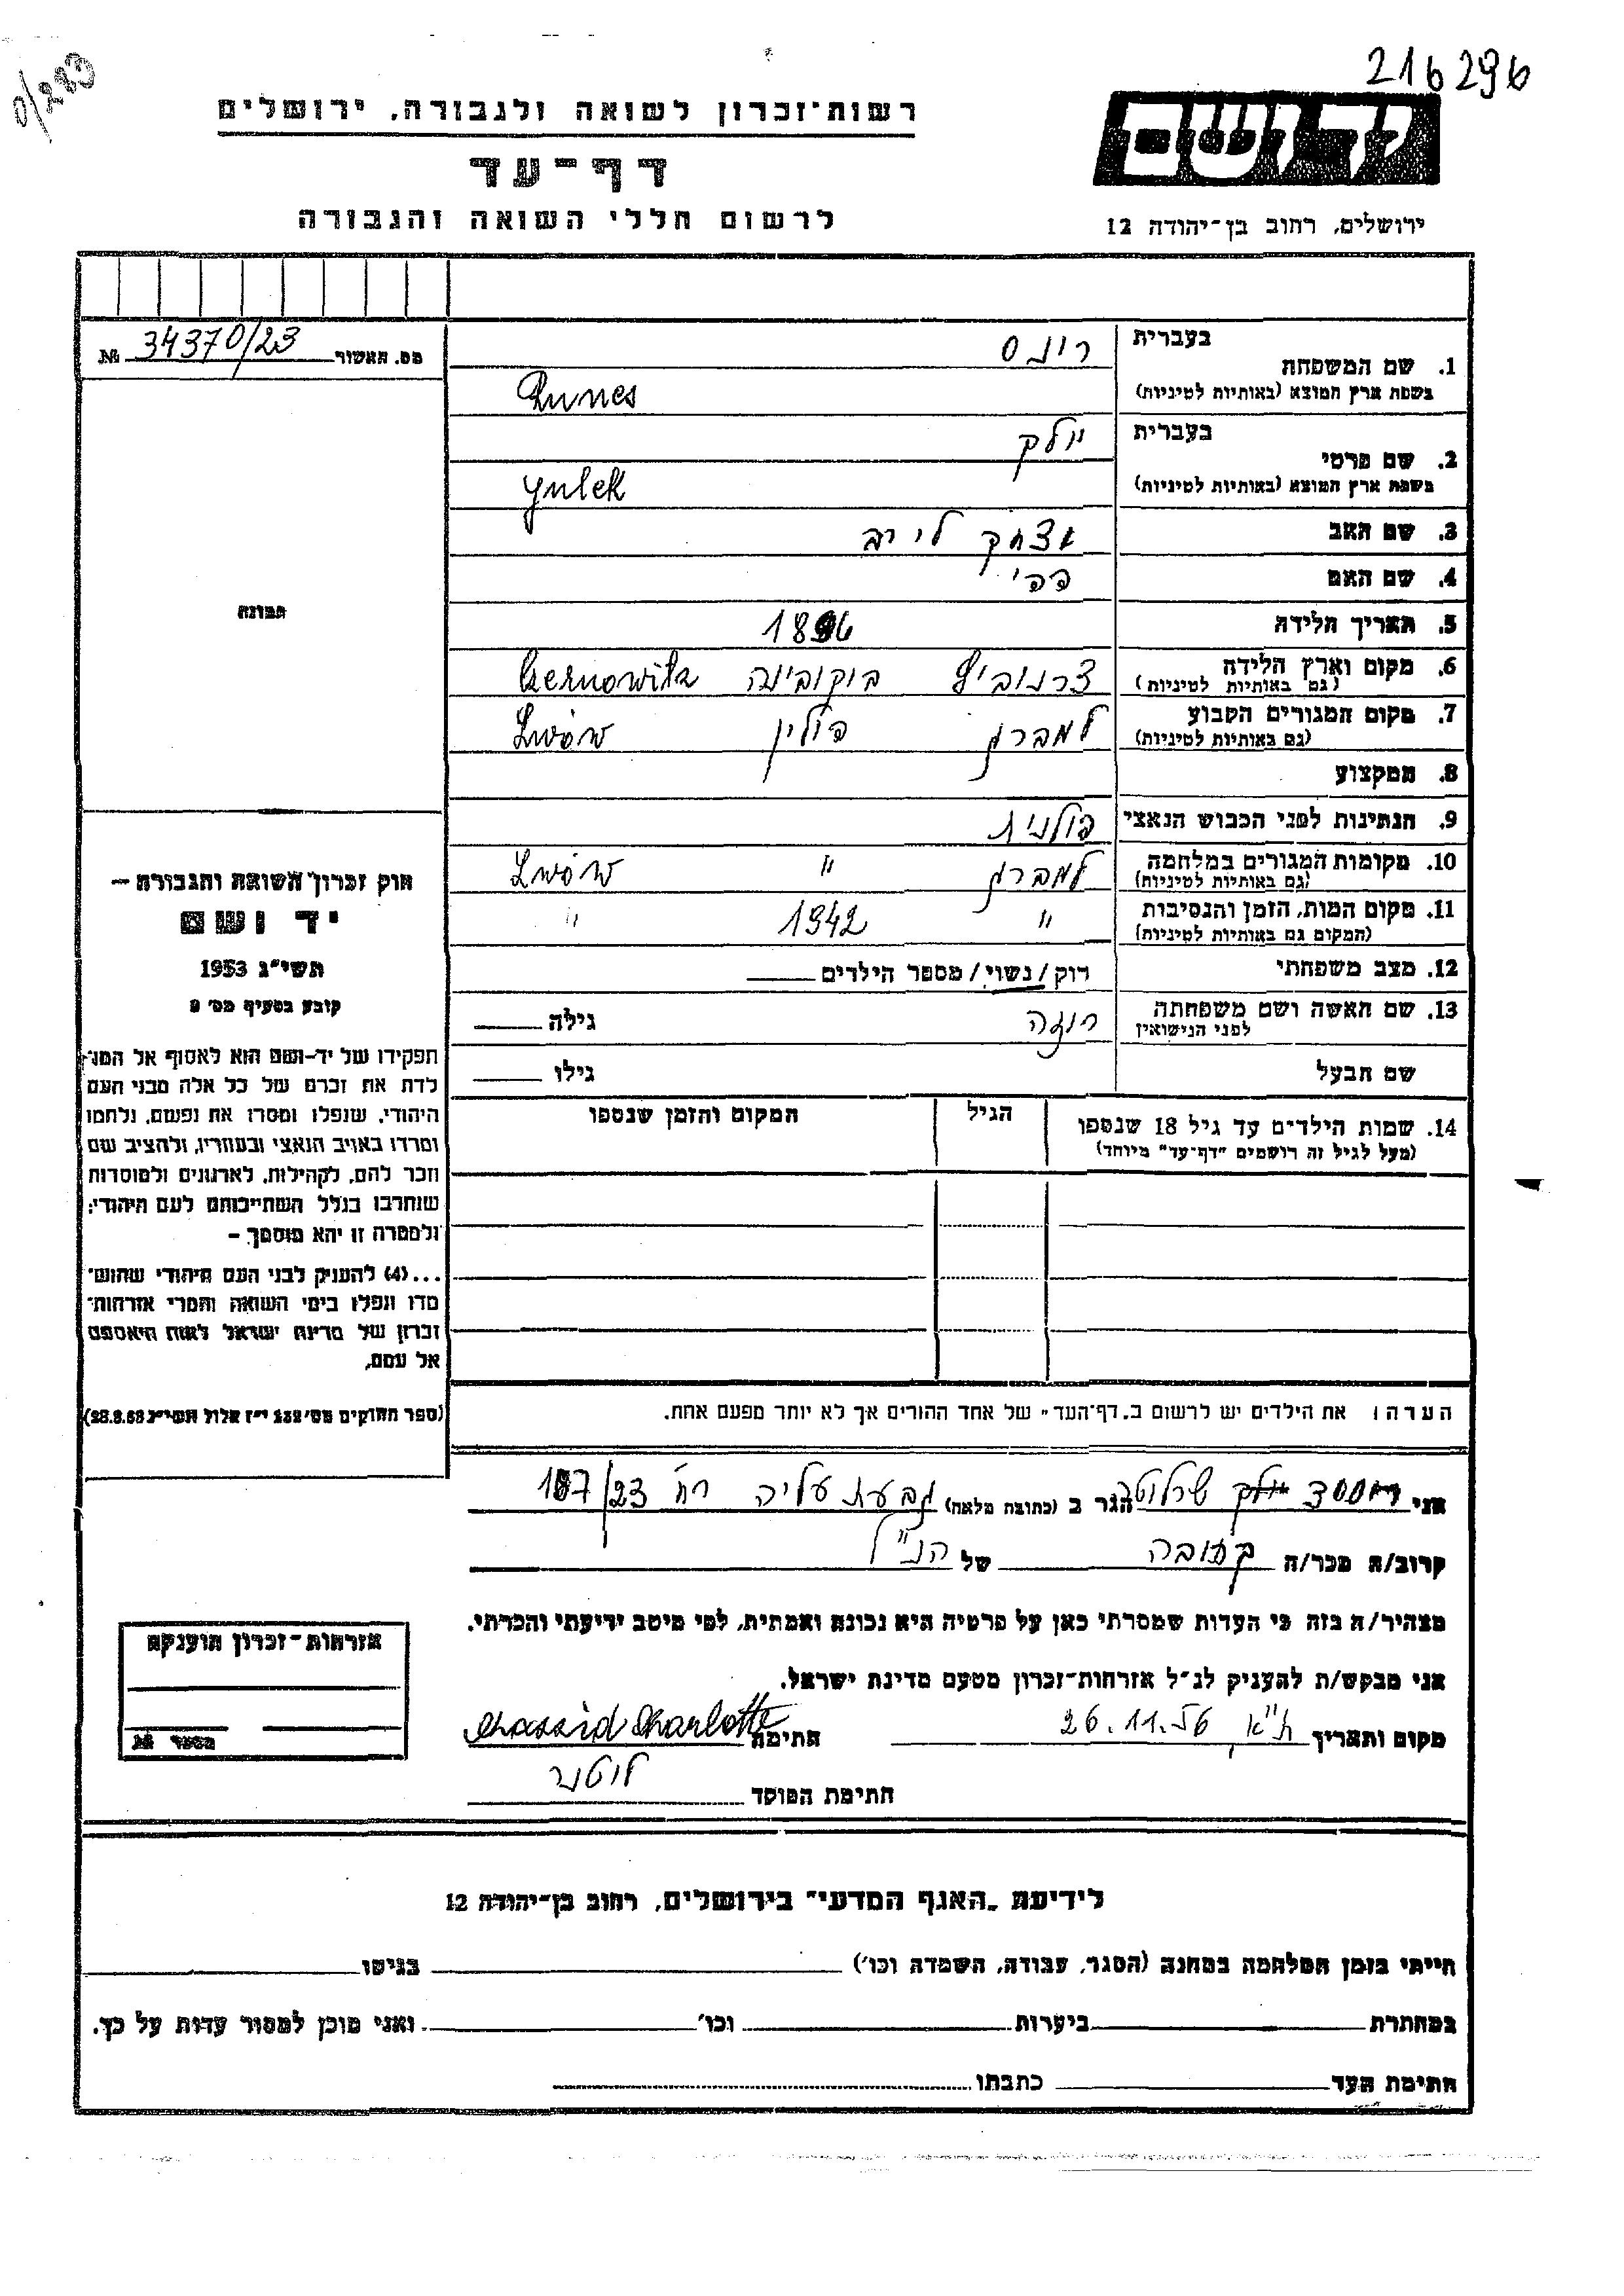 216296
0/283
רשות־זכרון לשואה ולגבורה, ירושלים
יד ושם
דף־עד
לרשום חללי השואה והגבורה
ירושלים, רחוב בן־יהודה 12
מס. האשור 34370/23 №
1. שם המשפחה
בעברית רונס
בשפת ארץ המוצא (באותיות לטיניות) Runes
2. שם פרטי
בעברית יולק
בשפת ארץ המוצא (באותיות לטיניות) Yulek
3. שם האב יצחק לייב
4. שם האם פפי
5. תאריך הלידה
6. מקום וארץ הלידה צרנוביץ בוקובינה Czernowitz
(גם באותיות לטיניות)
7. מקום המגורים הקבוע למברג פולין Lwów
(גם באותיות לטיניות)
8. המקצוע
9. הנתינות לפני הכבוש הנאצי פולנית
10. מקומות המגורים במלחמה למברג " Lwów
(גם באותיות לטיניות)
11. מקום המות, הזמן והנסיבות " 1942 "
(המקום גם באותיות לטיניות)
12. מצב משפחתי רוק/נשוי/מספר הילדים
13. שם האשה ושם משפחתה לפני הנישואין גילה
שם הבעל גילו
14. שמות הילדים עד גיל 18 שנספו הגיל המקום והזמן שנספו
(מעל לגיל זה רושמים "דף־עד" מיוחד)
תמונה
חוק זכרון השואה והגבורה –
יד ושם
תשי"ג 1953
קובע בסעיף מס' 2
תפקידו של יד-ושם הוא לאסוף אל המו־
לדת את זכרם של כל אלה מבני העם
היהודי, שנפלו ומסרו את נפשם, נלחמו
ומרדו באויב הנאצי ובעוזריו, ולהציב שם
וזכר להם, לקהילות, לארגונים ולמוסדות
שנחרבו בגלל השתייכותם לעם היהודי;
ולמטרה זו יהא מוסמך –
...(4) להעניק לבני העם היהודי שהוש־
מדו ונפלו בימי השואה והמרי אזרחות־
זכרון של מדינת ישראל לאות היאספם
אל עמם.
(ספר החוקים מס' 132 י"ז אלול תשי"ג 28.8.53)
הערה: את הילדים יש לרשום ב„דף־העד" של אחד ההורים אך לא יותר מפעם אחת.
אני שרלוטה הגר ב (כתובת מלאה) גבעת עליה רח' 187/23
קרוב/ה מכר/ה קרובה של הנ"ל
מצהיר/ה בזה כי העדות שמסרתי כאן על פרטיה היא נכונה ואמתית, לפי מיטב ידיעתי והכרתי.
אני מבקש/ת להעניק לנ"ל אזרחות־זכרון מטעם מדינת ישראל.
מקום ותאריך ת"א, 26.11.56 חתימה Chassid Charlotte
חתימת הפוקד
אזרחות־זכרון הוענקה
מספר №
לידיעת „האגף המדעי" בירושלים, רחוב בן־יהודה 12
הייתי בזמן המלחמה במחנה (הסגר, עבודה, השמדה וכו') בגיטו
במחתרת ביערות וכו' ואני מוכן למסור עדות על כך.
חתימת העד כתבתו